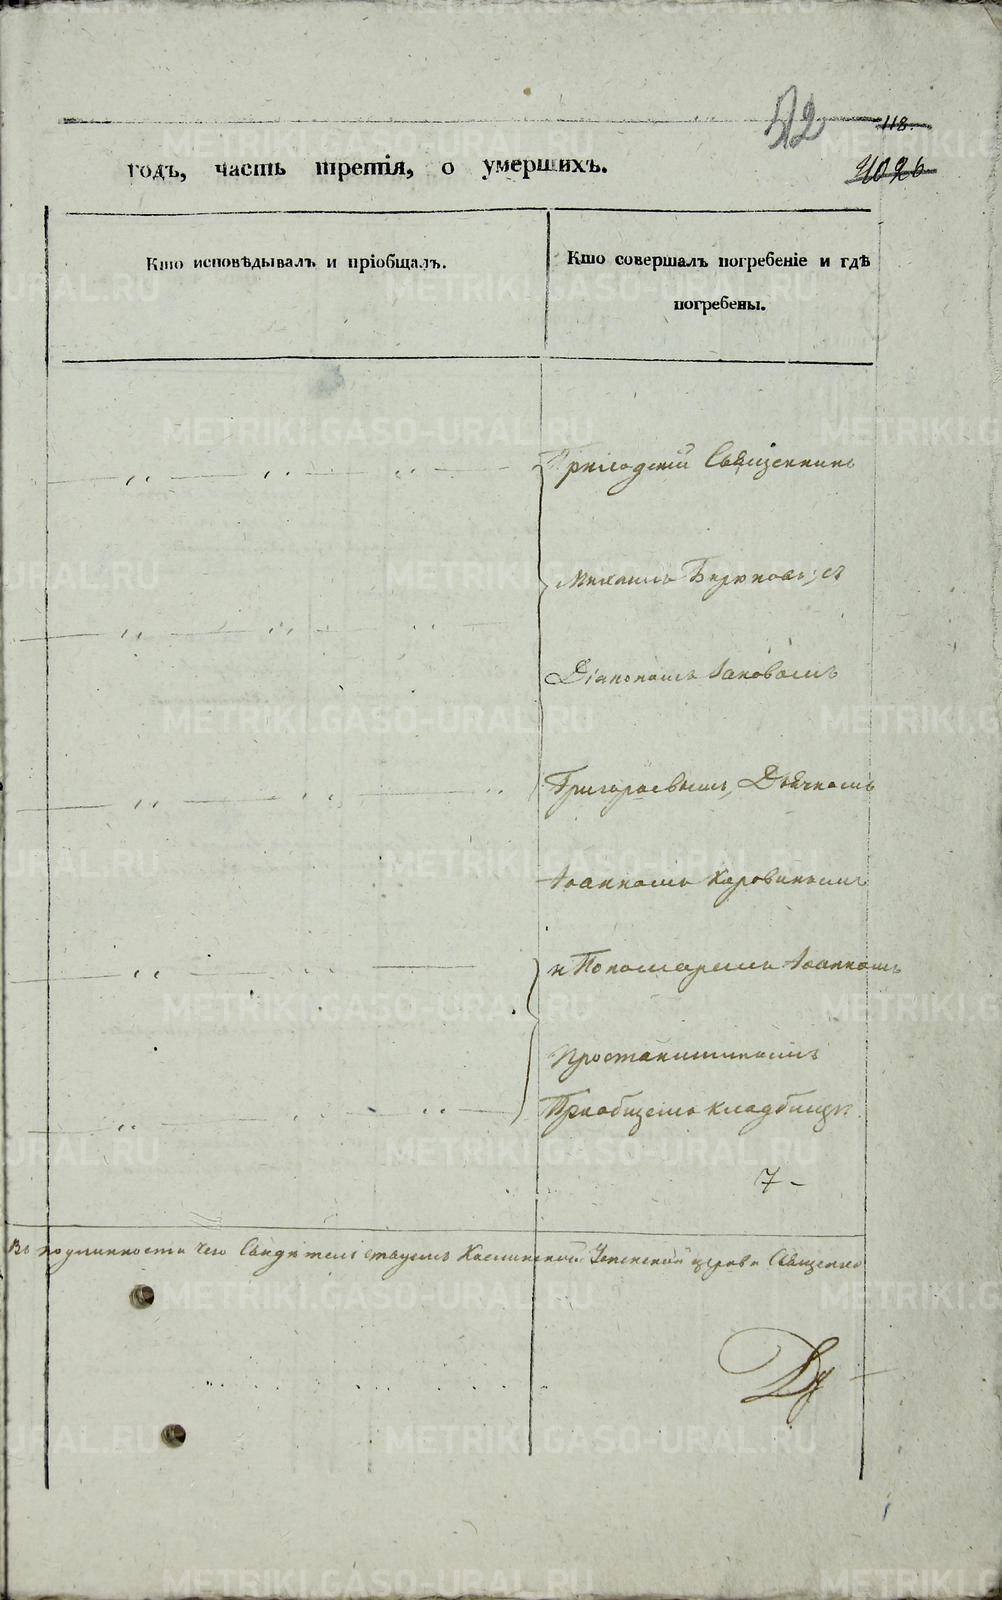 42
118.
годъ, часть третія, о умершихъ.
Кто исповѣдывалъ и пріобщалъ.
Кто совершалъ погребеніе и гдѣ
погребены.
Приходскій Священникъ
Михаилъ Бирюковъ, съ
Діакономъ Іаковомъ
Григорьевымъ, Дьячкомъ
Іоанномъ Коровинымъ
и Пономаремъ Іоанномъ
На общемъ кладбищѣ.
7 –
Въ подлинности чего Свидѣтельствуемъ Каслинской Успенской церкви Священно
METRIKI.GASO-URAL.RU